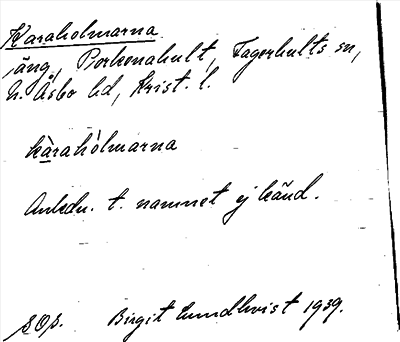 Karaholmarna
äng, Porkenahult, Fagerhults sn,
N. Åsbo hd, Krist. l.
kàrahòlmarna
Anledn. t. namnet ej känd.
SOS. Birgit Lundkvist 1939.